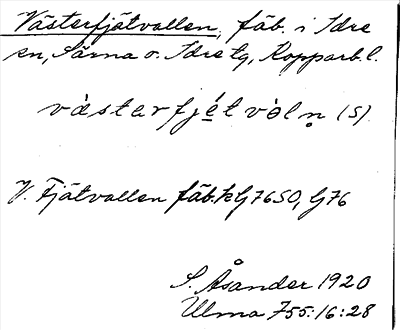 Västerfjätvallen, fäb. i Idre
sn, Särna o. Idre tg, Kopparb.l.
västarfjét vàln̥ (S).
V. Fjätvallen fäb. k G 76 SO, G 76
S. Åsander 1920
Ulma 755:16:28